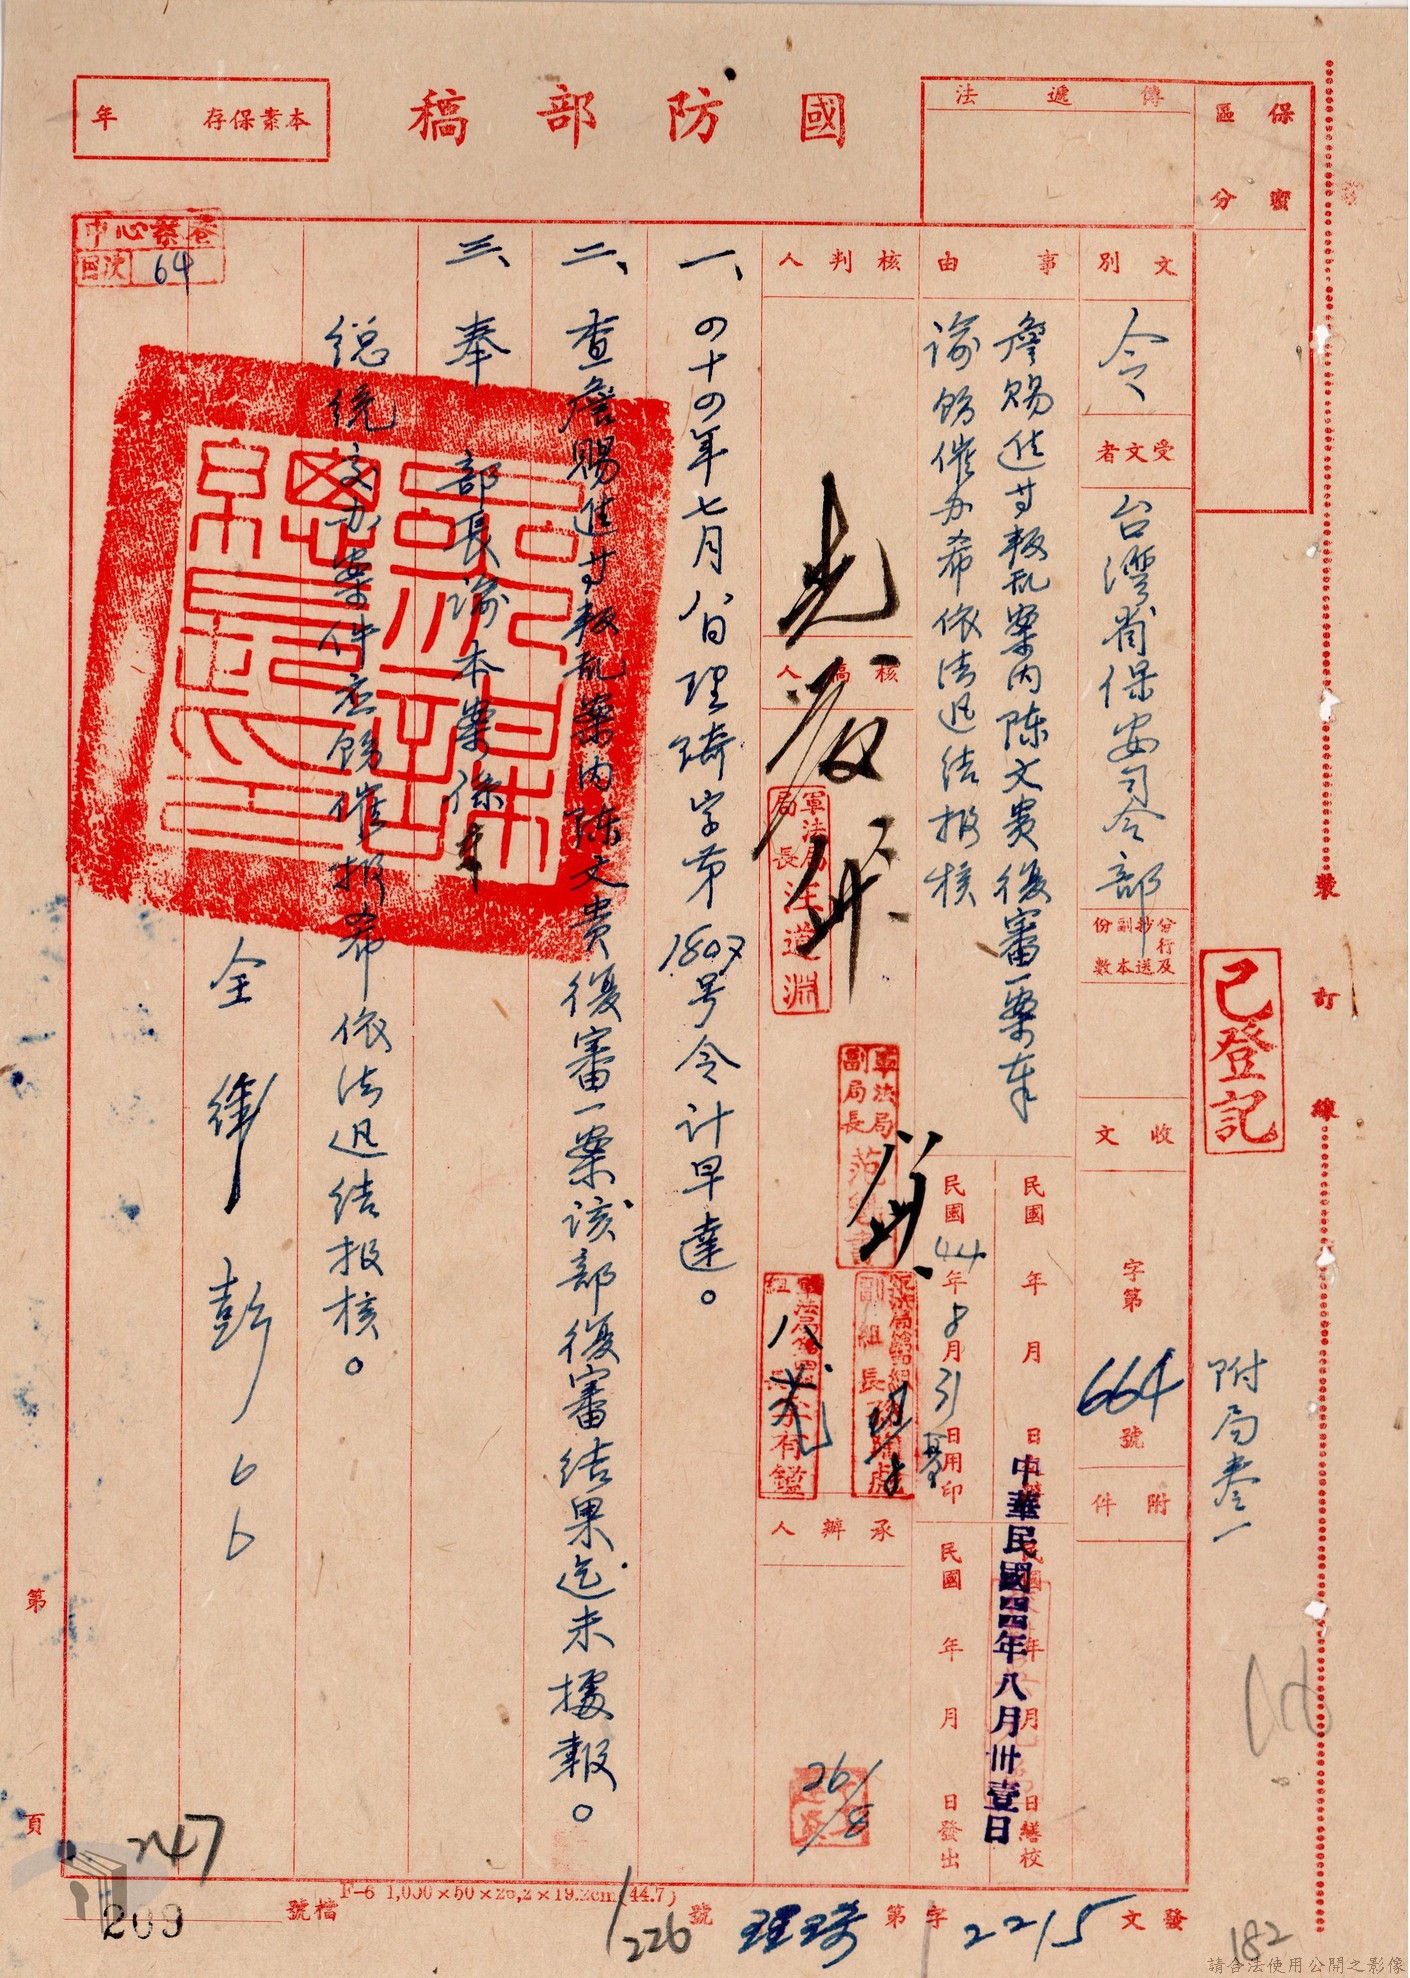 國防部稿
本案保存　年
傳遞法
保密
區分
已登記
附局卷一
文別
令
受文者
台灣省保安司令部
分行及抄送副本份數
收文
字第664號
附件
事由
詹賜進等叛乱案内陈文貴復審一案奉
諭飭催办希依法迅结报核
民國　年　月　日
中華民國四四年八月卅壹日
民國44年8月31日用印
民國　年　月　日繕校
民國　年　月　日發出
核判人
核稿人
軍法局局長汪道淵
軍法局副局長
承辦人
26/8
一、四十四年七月八日理琦字第1807号令计早達。
二、查詹賜進等叛乱案内陈文貴復審一案該部復審结果迄未據報。
三、奉　部長諭本案係奉
総统交办案件应飭催报希依法迅结报核。
全銜彭〇〇
中心察查
回次 64
第　頁
裝訂線
發文2215字第理琦號
1/226
F-6 1,000×50×26,2×19.2cm(44.7)
檔號
247
209
182
請合法使用公開之影像